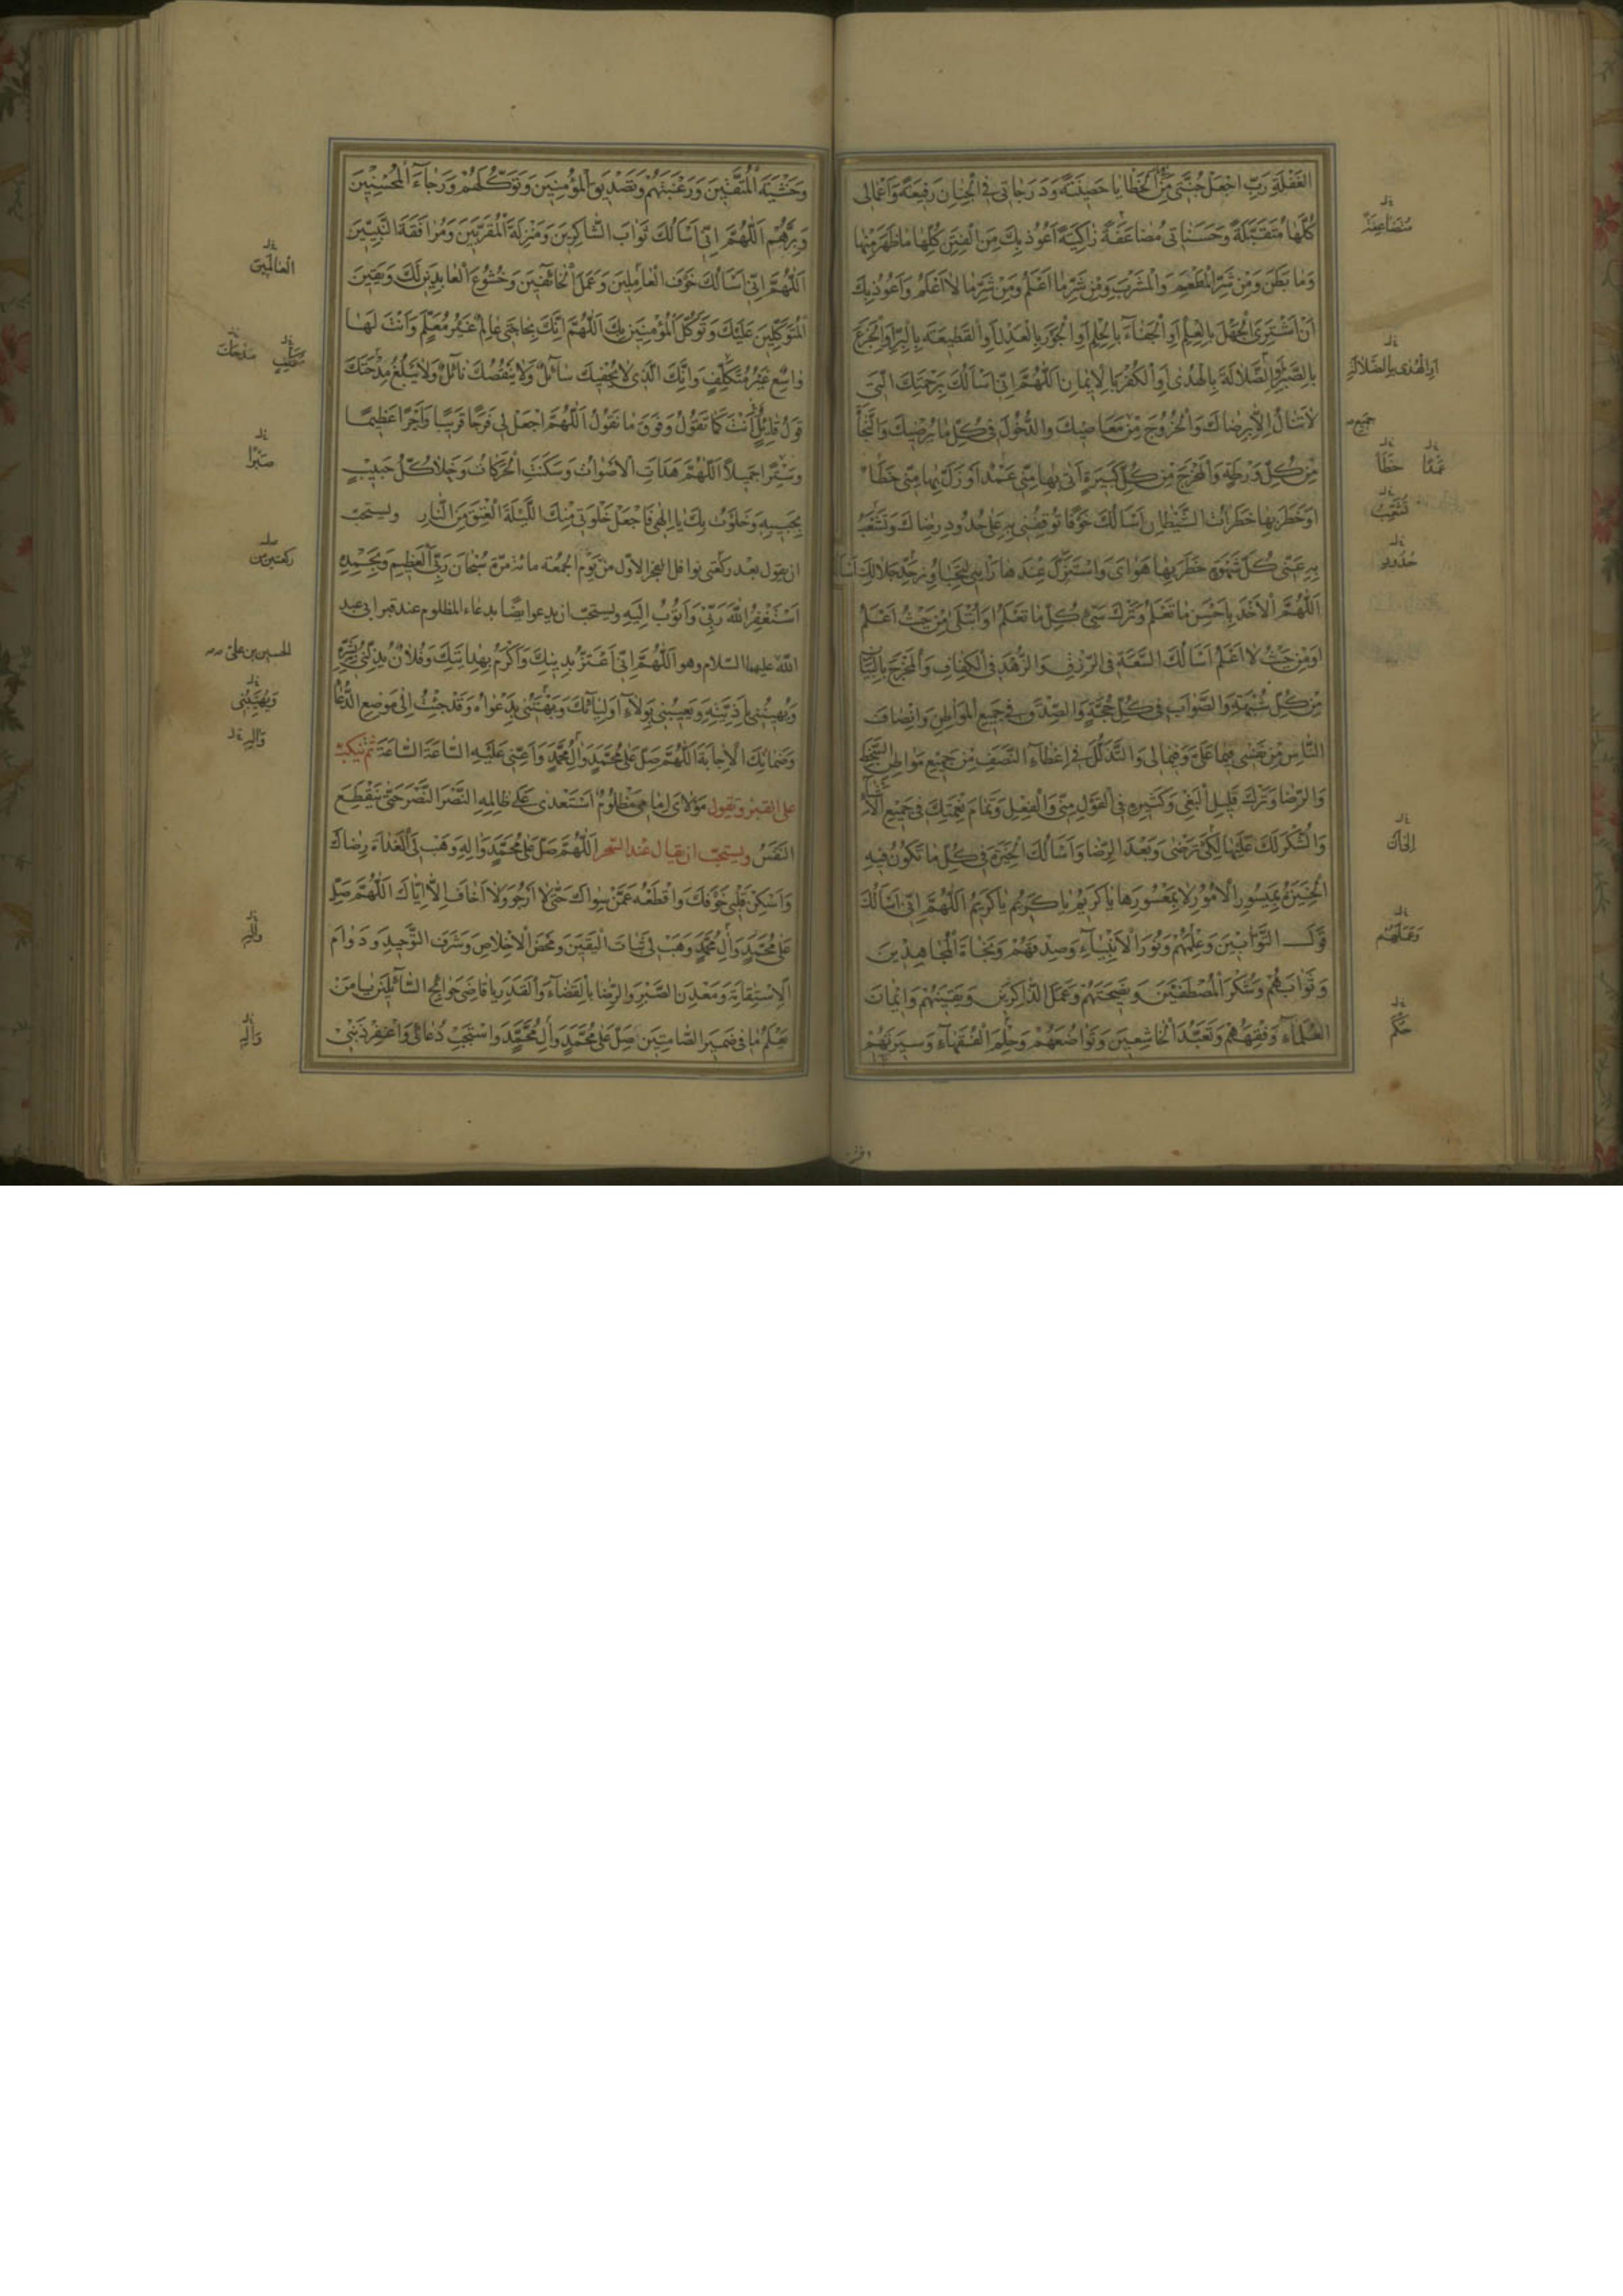 الغَفْلَةِ رَبِّ اجْعَلْ جُنَّتِي مِنَ الْخَطايا حَصِينَةً وَدَرَجاتِي فِي الْجِنانِ رَفِيعَةً وَاَعْمالِي
كُلَّها مُتَقَبَّلَةً وَحَسَناتِي مُضاعَفَةً زاكِيَةً اَعُوذُ بِكَ مِنَ الْفِتَنِ كُلِّها ما ظَهَرَ مِنْها
وَما بَطَنَ وَمِنْ شَرِّ الْمَطْعَمِ وَالْمَشْرَبِ وَمِنْ شَرِّ ما اَعْلَمُ وَمِنْ شَرِّ ما لا اَعْلَمُ وَاَعُوذُ بِكَ
اَنْ اَشْتَرِيَ الْجَهْلَ بِالْعِلْمِ اَوِ الْجَفاءَ بِالْحِلْمِ اَوِ الْجَوْرَ بِالْعَدْلِ اَوِ القَطِيعَةَ بِالْبِرِّ اَوِ الْجَزَعَ
بِالصَّبْرِ اَوِ الضَّلالَةَ بِالْهُدى اَوِ الْكُفْرَ بِالْاِيمانِ اَللّهُمَّ اِنِّي اَسْاَلُكَ بِرَحْمَتِكَ الَّتِي
لا تُنالُ اِلّا بِرِضاكَ وَالْخُرُوجَ مِنْ مَعاصِيكَ وَالدُّخُولَ فِي كُلِّ ما يُرْضِيكَ وَالنَّجاةَ
مِنْ كُلِّ وَرْطَةٍ وَالْمَخْرَجَ مِنْ كُلِّ كَبِيرَةٍ اَتى بِها مِنِّي عَمْدٌ اَوْ زَلَّ بِها مِنِّي خَطَأٌ
اَوْ خَطَرَ بِها خَطَراتُ الشَّيْطانِ اَسْاَلُكَ خَوْفًا تُوقِفُنِي بِهِ عَلى حُدُودِ رِضاكَ وَتَشْعَبُ
بِهِ عَنِّي كُلَّ شَهْوَةٍ خَطَرَ بِها هَوايَ وَاسْتَزَلَّ عِنْدَها رَأْيِي لِيُجاوِزَ حَدَّ حَلالِكَ اَسْاَلُكَ
اَللّهُمَّ الْاَخْذَ بِاَحْسَنِ ما تَعْلَمُ وَتَرْكَ سَيِّئِ كُلِّ ما تَعْلَمُ اَوْ اُبْتَلى مِنْ حَيْثُ اَعْلَمُ
اَوْ مِنْ حَيْثُ لا اَعْلَمُ اَسْاَلُكَ السَّعَةَ فِي الرِّزْقِ وَالزُّهْدَ فِي الْكَفافِ وَالْمَخْرَجَ بِالْبَيانِ
مِنْ كُلِّ شُبْهَةٍ وَالصَّوابَ فِي كُلِّ حُجَّةٍ وَالصِّدْقَ فِي جَمِيعِ الْمَواطِنِ وَاِنْصافَ
النّاسِ مِنْ نَفْسِي فِيما عَلَيَّ وَفِيما لِي وَالتَّذَلُّلَ فِي اِعْطاءِ النَّصَفِ مِنْ جَمِيعِ مَواطِنِ السَّخَطِ
وَالرِّضا وَتَرْكَ قَلِيلِ الْبَغْيِ وَكَثِيرِهِ فِي الْقَوْلِ مِنِّي وَالْفِعْلِ وَتَمامَ نِعْمَتِكَ فِي جَمِيعِ الْاَشْياءِ
وَالشُّكْرَ لَكَ عَلَيْها لِكَيْ تَرْضى وَبَعْدَ الرِّضا وَاَسْاَلُكَ الْخِيَرَةَ فِي كُلِّ ما تَكُونُ فِيهِ
الْخِيَرَةُ بِمَيْسُورِ الْاُمُورِ لا بِمَعْسُورِها يا كَرِيمُ يا كَرِيمُ يا كَرِيمُ اَللّهُمَّ اِنِّي اَسْاَلُكَ
قَوْلَ التَّوّابِينَ وَعِلْمَهُمْ وَنُورَ الْاَنْبِياءِ وَصِدْقَهُمْ وَنَجاةَ الْمُجاهِدِينَ
وَثَوابَهُمْ وَشُكْرَ الْمُصْطَفَيْنَ وَنَصِيحَتَهُمْ وَعَمَلَ الذّاكِرِينَ وَيَقِينَهُمْ وَاِيمانَ
الْعُلَماءِ وَفِقْهَهُمْ وَتَعَبُّدَ الْخاشِعِينَ وَتَواضُعَهُمْ وَحِلْمَ الْفُقَهاءِ وَسِيرَتَهُمْ
مُتَضاعِفَةً
اَوِ الْهُدى بِالضَّلالَةِ
جميع
عَمْدًا خَطَأً
تُشَعِّبُ
حُدُودِ
وَعَمَلَهُمْ
حُكْمَ
وَخَشْيَةَ الْمُتَّقِينَ وَرَغْبَتَهُمْ وَتَصْدِيقَ الْمُؤْمِنِينَ وَتَوَكُّلَهُمْ وَرَجاءَ الْمُحْسِنِينَ
وَبِرَّهُمْ اَللّهُمَّ اِنِّي اَسْاَلُكَ ثَوابَ الشّاكِرِينَ وَمَنْزِلَةَ الْمُقَرَّبِينَ وَمُرافَقَةَ النَّبِيِّينَ
اَللّهُمَّ اِنِّي اَسْاَلُكَ خَوْفَ الْعامِلِينَ وَعَمَلَ الْخائِفِينَ وَخُشُوعَ الْعابِدِينَ لَكَ وَيَقِينَ
الْمُتَوَكِّلِينَ عَلَيْكَ وَتَوَكُّلَ الْمُؤْمِنِينَ بِكَ اَللّهُمَّ اِنَّكَ بِحاجَتِي عالِمٌ غَيْرُ مُعَلَّمٍ وَاَنْتَ لَها
واسِعٌ غَيْرُ مُتَكَلِّفٍ وَاِنَّكَ الَّذِي لا يُحْفِيكَ سائِلٌ وَلا يَنْقُصُكَ نائِلٌ وَلا يَبْلُغُ مِدْحَتَكَ
قَوْلُ قائِلٍ اَنْتَ كَما تَقُولُ وَفَوْقَ ما نَقُولُ اَللّهُمَّ اجْعَلْ لِي فَرَجًا قَرِيبًا وَاَجْرًا عَظِيمًا
وَسِتْرًا جَمِيلًا اَللّهُمَّ هَدَاَتِ الْاَصْواتُ وَسَكَنَتِ الْحَرَكاتُ وَخَلا كُلُّ حَبِيبٍ
بِحَبِيبِهِ وَخَلَوْتُ بِكَ يا اِلهِي فَاجْعَلْ خَلْوَتِي مِنْكَ اللَّيْلَةَ الْعِتْقَ مِنَ النّارِ ويستحبّ
ان يقول بعد ركعتي نوافل الفجر الاوّل من يوم الجمعة مائة مرّة سُبْحانَ رَبِّيَ الْعَظِيمِ وَبِحَمْدِهِ
اَسْتَغْفِرُ اللّهَ رَبِّي وَاَتُوبُ اِلَيْهِ ويستحبّ ان يدعو ايضًا بدعاء المظلوم عند قبر ابي عبد
اللّه عليهما السّلام وهو اَللّهُمَّ اِنِّي اَعْتَزُّ بِدِينِكَ وَاَكْرُمُ بِهِدايَتِكَ وَفُلانٌ يُذِلُّنِي بِشَرِّهِ
وَيُهِينُنِي بِاَذِيَّتِهِ وَيَعِيبُنِي بِوِلاءِ اَوْلِيائِكَ وَيَبْهَتُنِي بِدَعْواهُ وَقَدْ جِئْتُ اِلى مَوْضِعِ الدُّعاءِ
وَضَمانِكَ الْاِجابَةَ اَللّهُمَّ صَلِّ عَلى مُحَمَّدٍ وَآلِ مُحَمَّدٍ وَاَعِنِّي عَلَيْهِ السّاعَةَ السّاعَةَ ثم ينكبّ
على القبر وتقول مَوْلايَ اِمامِي مَظْلُومٌ اسْتَعْدى عَلى ظالِمِهِ النَّصْرَ النَّصْرَ حَتّى يَنْقَطِعَ
النَّفَسُ ويستحبّ ان يقال عند السّحر اَللّهُمَّ صَلِّ عَلى مُحَمَّدٍ وَالِهِ وَهَبْ لِيَ الْغَداةَ رِضاكَ
وَاَسْكِنْ قَلْبِي خَوْفَكَ وَاقْطَعْهُ عَمَّنْ سِواكَ حَتّى لا اَرْجُوَ وَلا اَخافَ اِلّا اِيّاكَ اَللّهُمَّ صَلِّ
عَلى مُحَمَّدٍ وَآلِ مُحَمَّدٍ وَهَبْ لِي ثَباتَ الْيَقِينِ وَمَحْضَ الْاِخْلاصِ وَشَرَفَ التَّوْحِيدِ وَدَوامَ
الْاِسْتِقامَةِ وَمَعْدِنَ الصَّبْرِ وَالرِّضا بِالْقَضاءِ وَالْقَدَرِ يا قاضِيَ حَوائِجِ السّائِلِينَ يا مَنْ
يَعْلَمُ ما فِي ضَمِيرِ الصّامِتِينَ صَلِّ عَلى مُحَمَّدٍ وَآلِ مُحَمَّدٍ وَاسْتَجِبْ دُعائِي وَاغْفِرْ ذَنْبِي
الْعالَمِينَ
صَبْرًا
ركعتين من
الحسين بن علي
وَيُهِينُنِي
وَالِهِ
وَالِهِ
وَالِهِ